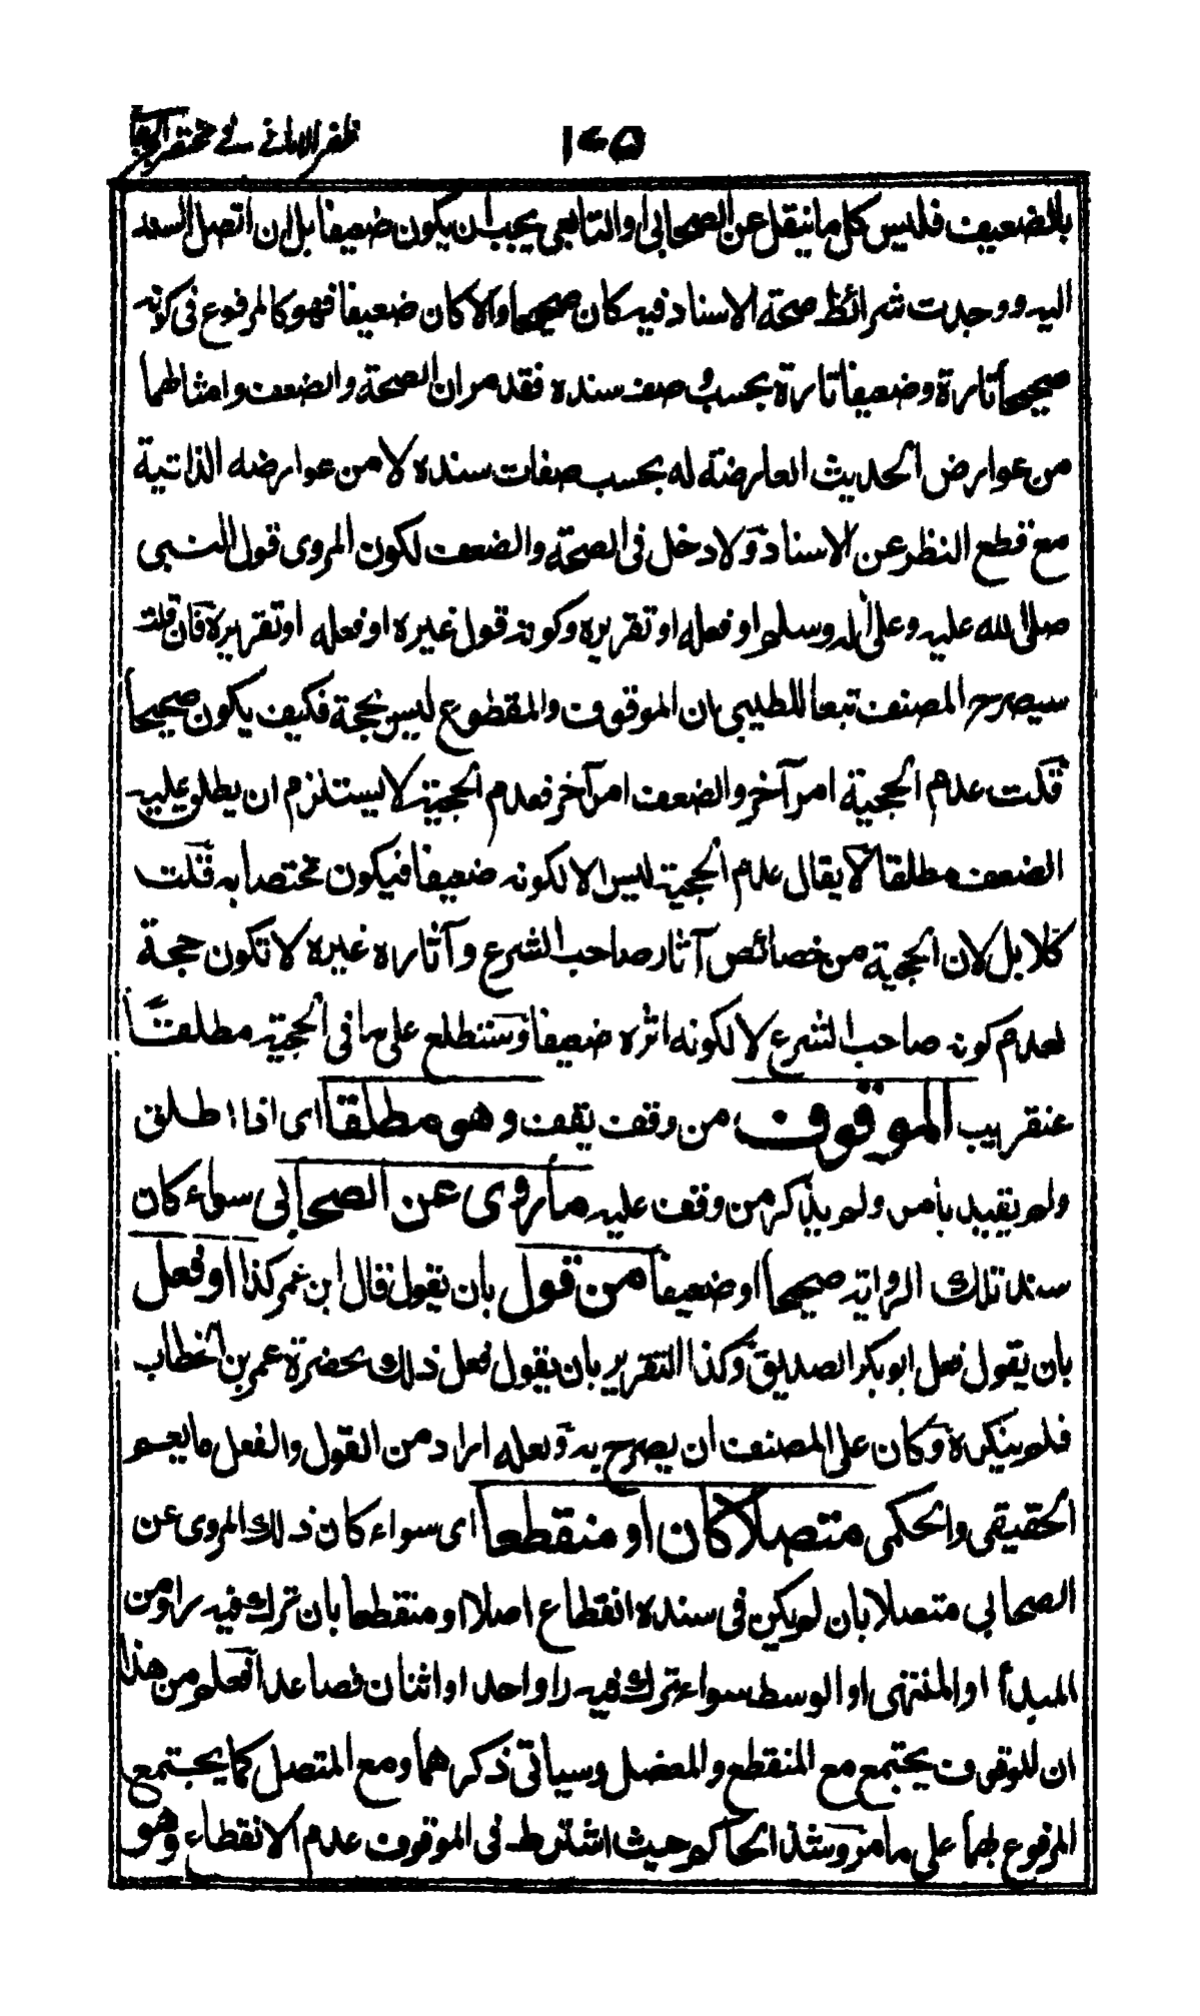 ظفر الامانى فى مختصر الجرجانى
١٧٥
بالضعيف فليس كل ما ينقل عن الصحابى او التابعى يجب ان يكون ضعيفا بل ان اتصل السند
اليه ووجدت شرائط صحة الاسناد فيه كان صحيحا والا كان ضعيفا فهو كالمرفوع فى كونه
صحيحا تارة وضعيفا تارة بحسب وصف سنده فقد مر ان الصحة والضعف وامثالهما
من عوارض الحديث العارضة له بحسب صفات سنده لا من عوارضه الذاتية
مع قطع النظر عن الاسناد ولا دخل فى الصحة والضعف لكون المروى قول النبى
صلى الله عليه وعلى اله وسلم او فعله او تقريره وكونه قول غيره او فعله او تقريره فان قلت
سيصرح المصنف تبعا للطيبى بان الموقوف والمقطوع ليس بحجة فكيف يكون صحيحا
قلت عدم الحجية امر آخر والضعف امر آخر فعدم الحجية لا يستلزم ان يطلق عليه
الضعف مطلقا لا يقال عدم الحجية ليس الا لكونه ضعيفا فيكون مختصا به قلت
كلا بل لان الحجية من خصائص آثار صاحب الشرع وآثار غيره لا تكون حجة
لعدم كونه صاحب الشرع لا لكونه اثره ضعيفا وستطلع على ما فى الحجية مطلقا
عنقريب الموقوف من وقف يقف وهو مطلقا اى اذا اطلق
ولم يقيد بامر ولم يذكر من وقف عليه ما روى عن الصحابى سواء كان
سند تلك الرواية صحيحا او ضعيفا من قول بان يقول قال ابن عمر كذا او فعل
بان يقول فعل ابو بكر الصديق وكذا التقرير بان يقول فعل ذلك بحضرة عمر بن الخطاب
فلم ينكره وكان على المصنف ان يصرح به ولعله اراد من القول والفعل ما يعم
الحقيقى والحكمى متصلا كان او منقطعا اى سواء كان ذلك المروى عن
الصحابى متصلا بان لم يكن فى سنده انقطاع اصلا او منقطعا بان ترك فيه راو من
المبدأ او المنتهى او الوسط سواء ترك فيه راو واحد او اثنان فصاعدا فعلم من هذا
ان للموقوف يجتمع مع المنقطع والمعضل وسياتى ذكرهما ومع المتصل كما يجتمع
المرفوع بهما على ما مر وشذ الحاكم حيث اشترط فى الموقوف عدم الانقطاع وهو